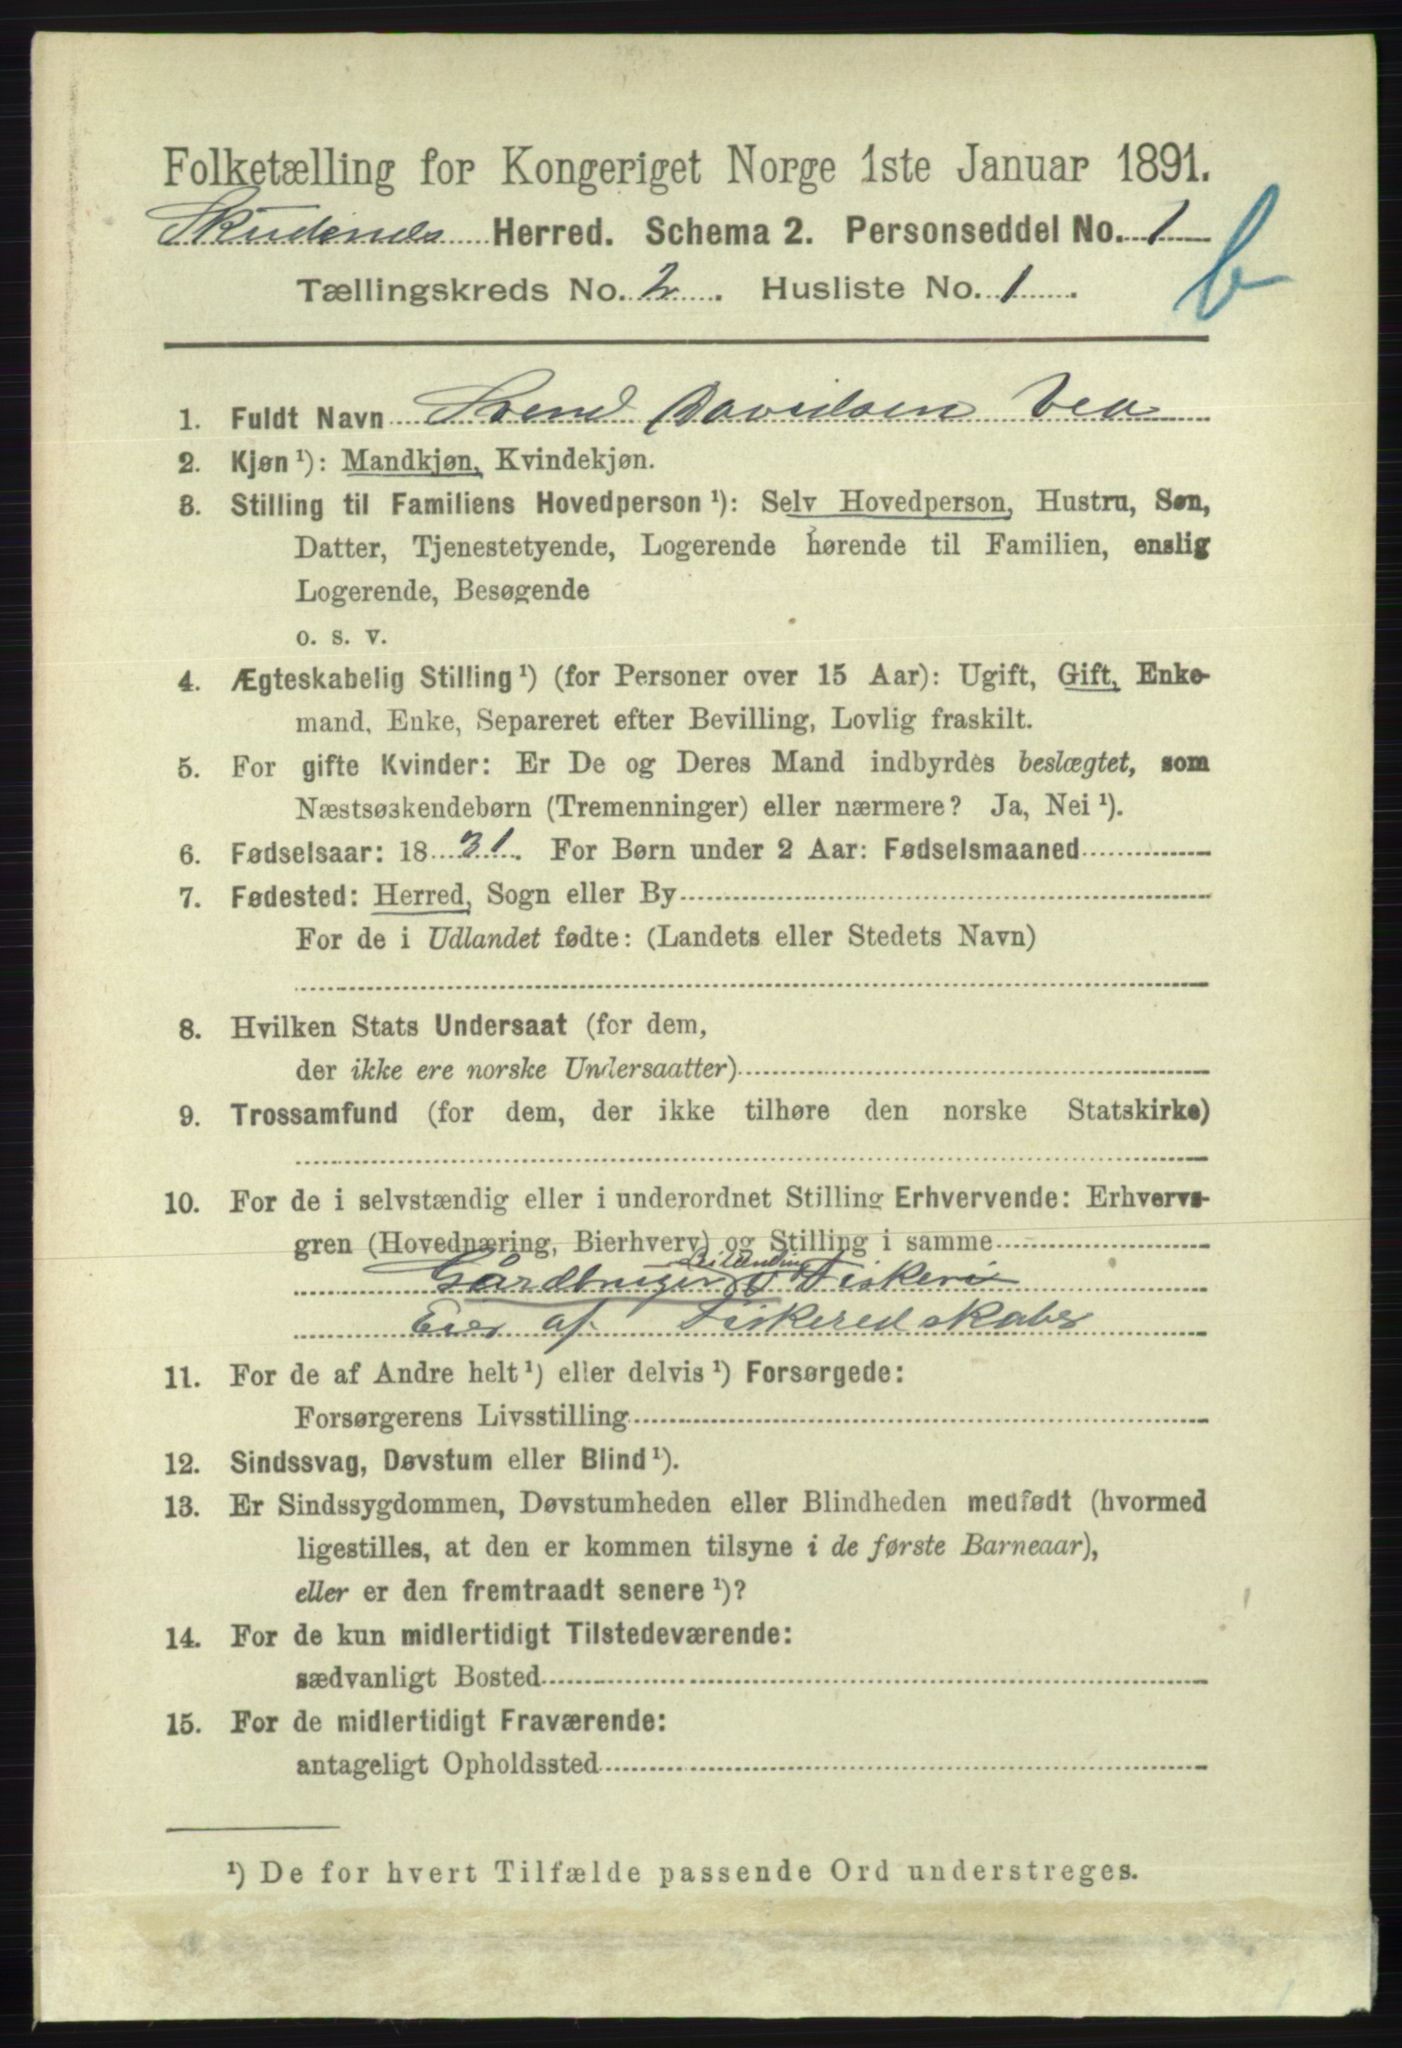 Folketælling for Kongeriget Norge 1ste Januar 1891.
Skudenes Herred. Schema 2. Personseddel No. 1
b
Tællingskreds No. 2. Husliste No. 1.
1. Fuldt Navn Svend Davidsen Vea
2. Kjøn ¹): Mandkjøn, Kvindekjøn.
3. Stilling til Familiens Hovedperson ¹): Selv Hovedperson, Hustru, Søn,
Datter, Tjenestetyende, Logerende hørende til Familien, enslig
Logerende, Besøgende
o. s. v.
4. Ægteskabelig Stilling ¹) (for Personer over 15 Aar): Ugift, Gift, Enke-
mand, Enke, Separeret efter Bevilling, Lovlig fraskilt.
5. For gifte Kvinder: Er De og Deres Mand indbyrdes beslægtet, som
Næstsøskendebørn (Tremenninger) eller nærmere? Ja, Nei ¹).
6. Fødselsaar: 1831. For Børn under 2 Aar: Fødselsmaaned
7. Fødested: Herred, Sogn eller By
For de i Udlandet fødte: (Landets eller Stedets Navn)
8. Hvilken Stats Undersaat (for dem,
der ikke ere norske Undersaatter)
9. Trossamfund (for dem, der ikke tilhøre den norske Statskirke)
10. For de i selvstændig eller i underordnet Stilling Erhvervende: Erhvervs-
gren (Hovednæring, Bierhverv) og Stilling i samme
Leilænding
Gårdbruger Fiskeri
Eier af Fiskeredskaber
11. For de af Andre helt ¹) eller delvis ¹) Forsørgede:
Forsørgerens Livsstilling
12. Sindssvag, Døvstum eller Blind ¹).
13. Er Sindssygdommen, Døvstumheden eller Blindheden medfødt (hvormed
ligestilles, at den er kommen tilsyne i de første Barneaar),
eller er den fremtraadt senere ¹)?
14. For de kun midlertidigt Tilstedeværende:
sædvanligt Bosted
15. For de midlertidigt Fraværende:
antageligt Opholdssted
¹) De for hvert Tilfælde passende Ord understreges.